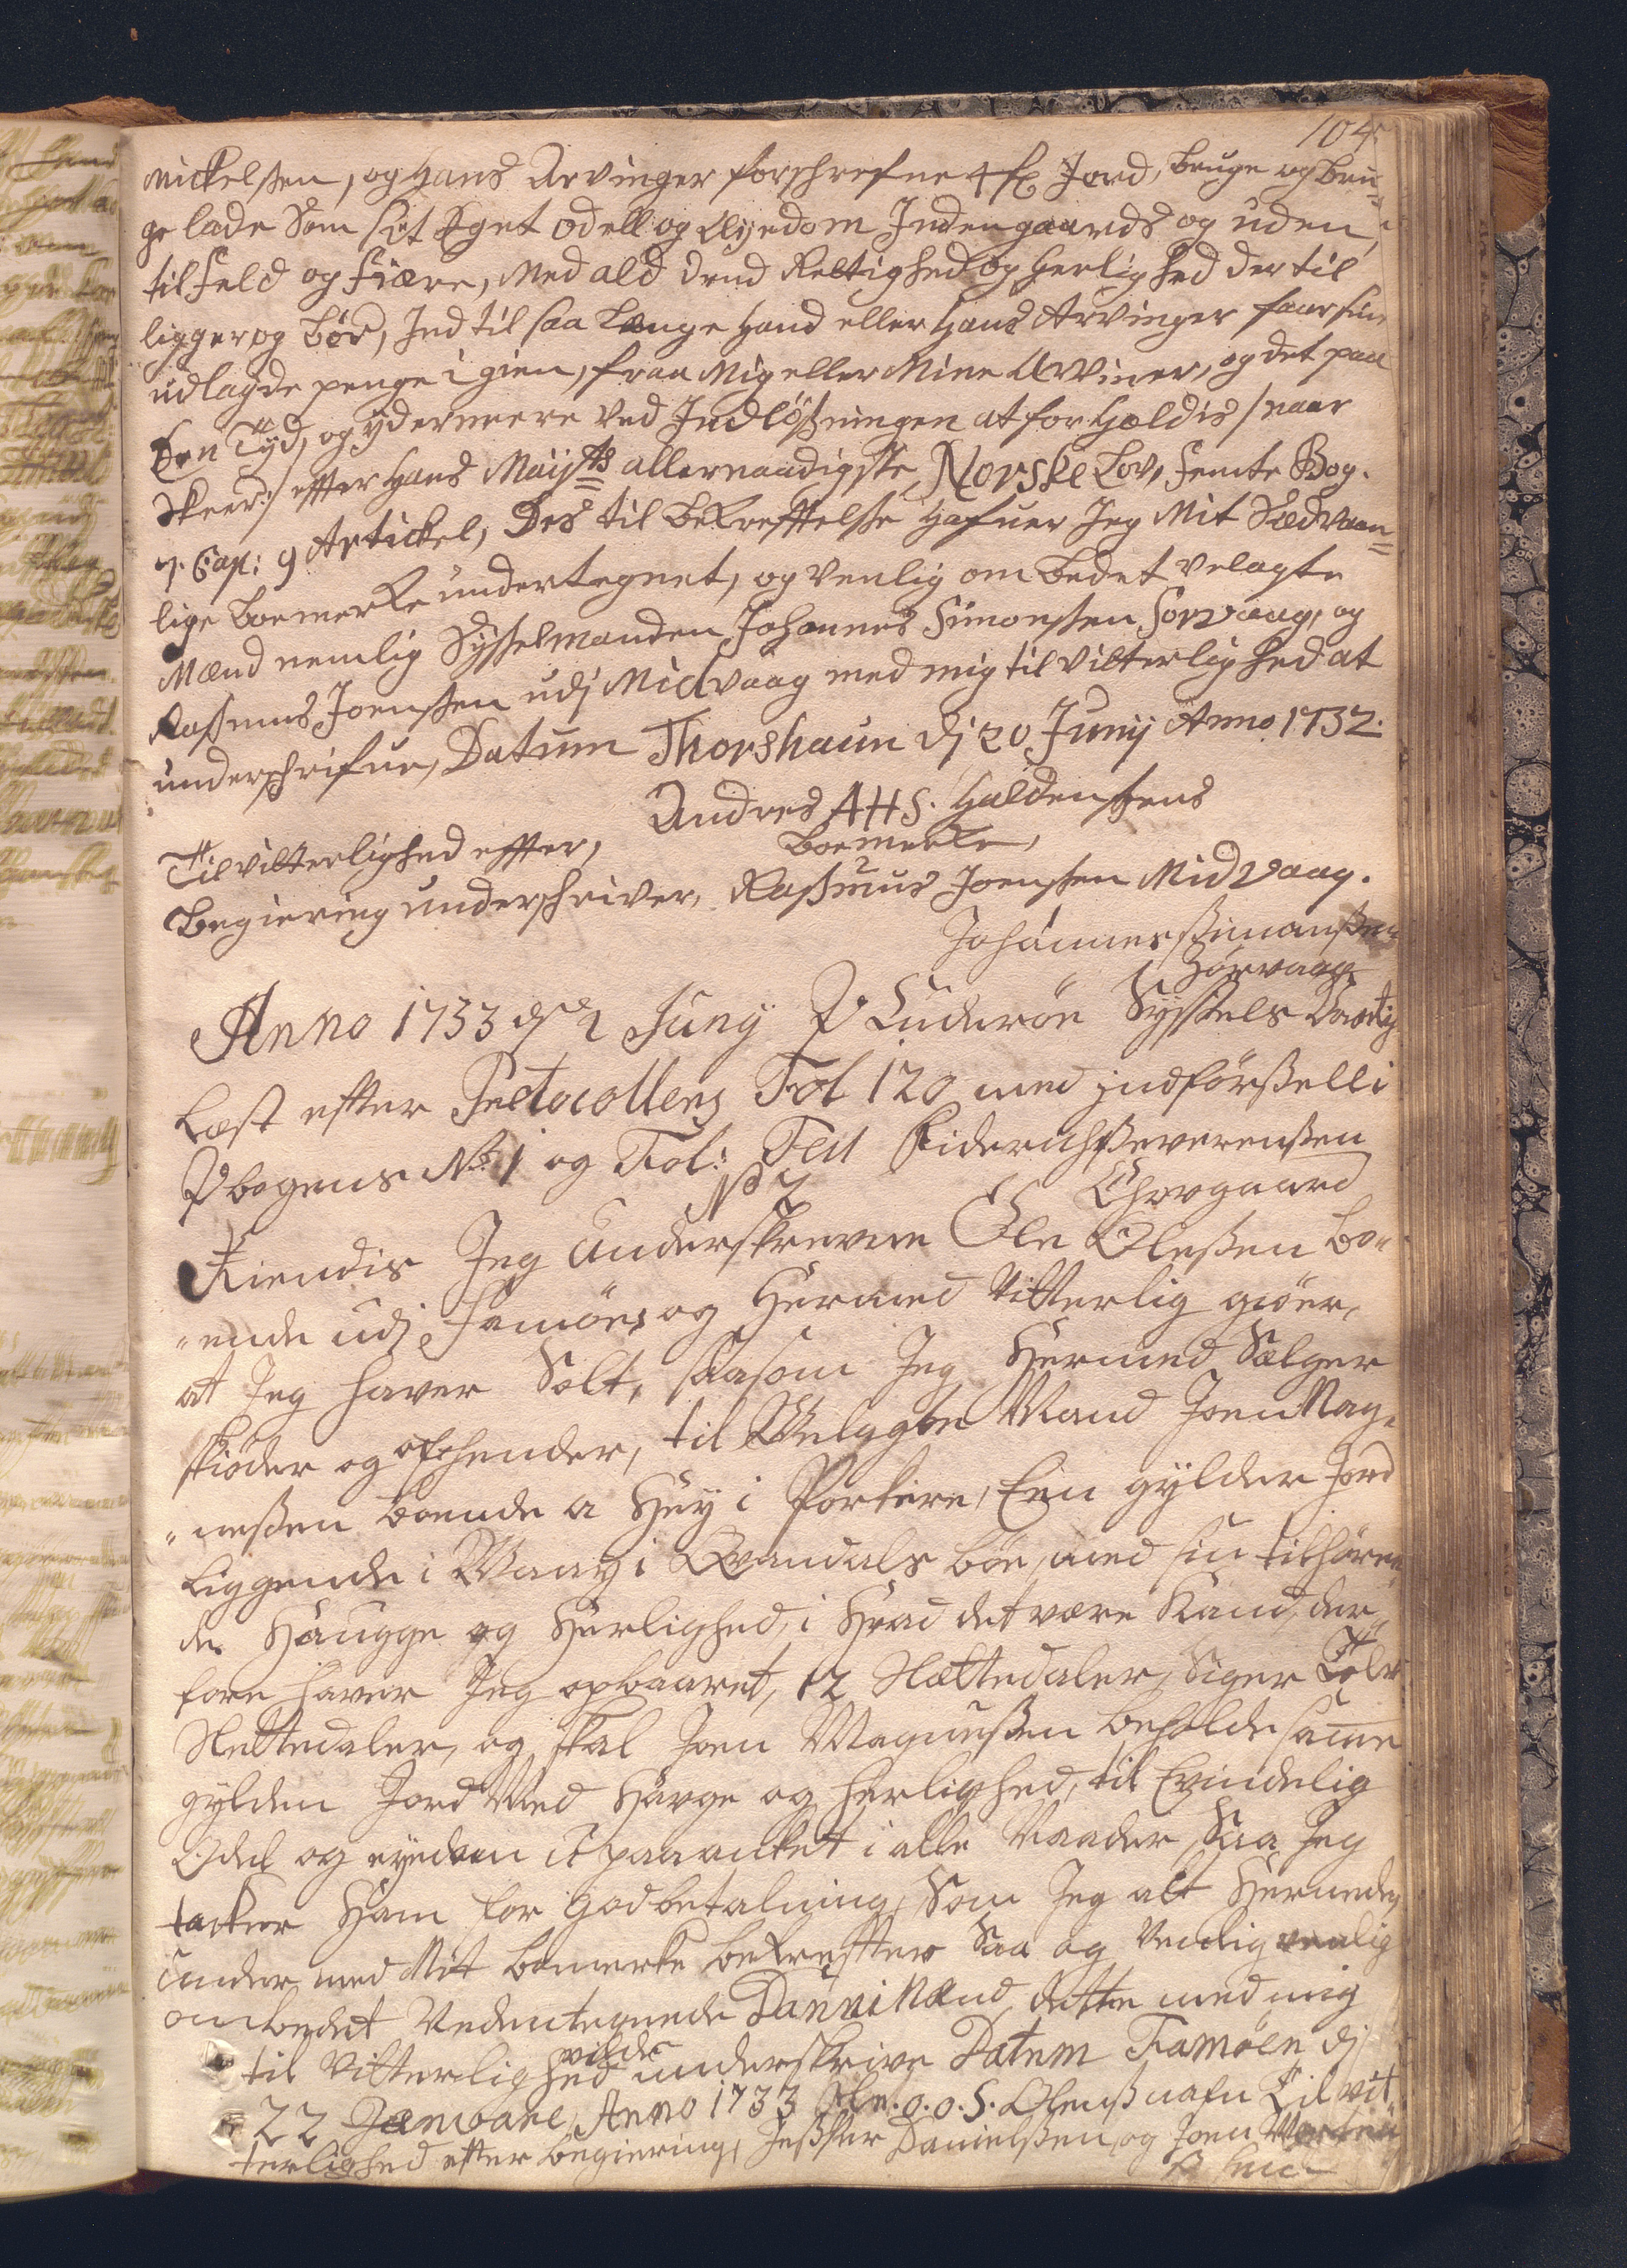 104
Mickelsen, og Hans Arvinger forschrefne 4 fx Jord, bruge og bru=
ge lade Som sit Eget odell og Eyedom Indengaards og uden,
til feld og fiære, Med ald dend Rettighed og Herlighed der til
ligger og bör, Ind til saa Længe Hand eller Hans Arvinger faar sine
udlagde penge i gien, fraa Mig eller Mine Arvinger, og det paa
den Tÿd, og ydermeere Ved Indlößningen at forHoldis /naar
Skeer:/ effter Hans Maijts allernaadigste Norske Lov, femte Bog.
7. Cap: 9 Artickel, Des til bekrefftelse Hafuer Jeg Mit Sædvaan=
lige boemerke undertegnet, og Venlig om bedet velagte
Mænd nemlig Sysselmanden Johannes Simonsen Sorvaag, og
Rasmus Joensen udj Midvaag med mig til Vitterlighed at
underschrifue, Datum Thorshaun dj 20 Junij Anno 1732.
Andres AHS. Haldensens
boemerke,
Til vitterlighed effter,
begiering underschriver, Rasmus Joensen Midvaag.
Johannes Simonsen
Sörvaag
Anno 1733 d 2 Junij P Suderöe Syssels Vaarting
Læst efter Protocollens Fol 120 med indförssell i
P bogens No 1 og Fol: Test Fiderich Severensen
Ehrgaard
No 2
Kiendis Jeg Underskrevne Ole Olessen bo=
ende udj Famöen og Hermed Vitterlig giöer,
at Jeg haver Solt, saasom Jeg Hermed Sælger
skiöder og afhender, til Velagte Mand Joen Mag=
nessen boende a Huÿ i Porkere, Een gÿlden Jord
liggende i Waag i Qvandals böe, med sin tilhören
de Haugge og Herlighed, i Hvad det være Kand, der
fore haver Jeg opbaaret, 12 Slettedaler, Siger Tolv
Slettedaler, og skal Joen Magnessen beholde samme
gylden Jord Med Havge og Herlighed, til Evindelig
Odel og eyedom U paaanket i alle Maader, Saa Jeg
tacker Ham for God betalning, Som Jeg alt Herneden
under med Mit bomerke bekreffter Saa og Vendlig venlig
ombedet Nedentegnede DanniMænd dette med mig
til Vitterlighed vilde underskrive Datum Famöen dj
22 Janvare, Anno 1733 Ole. O. O. S. Olens nafn Til vit
terlighed efter begiering, Jesper Danielssen, og Joen Morten